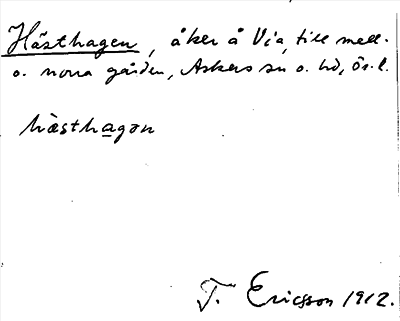 Hästhagen, åker å Via, till mell.
o. norra gården, Askers sn o. hd, Ör. l.
hästhagən
T. Ericsson 1912.